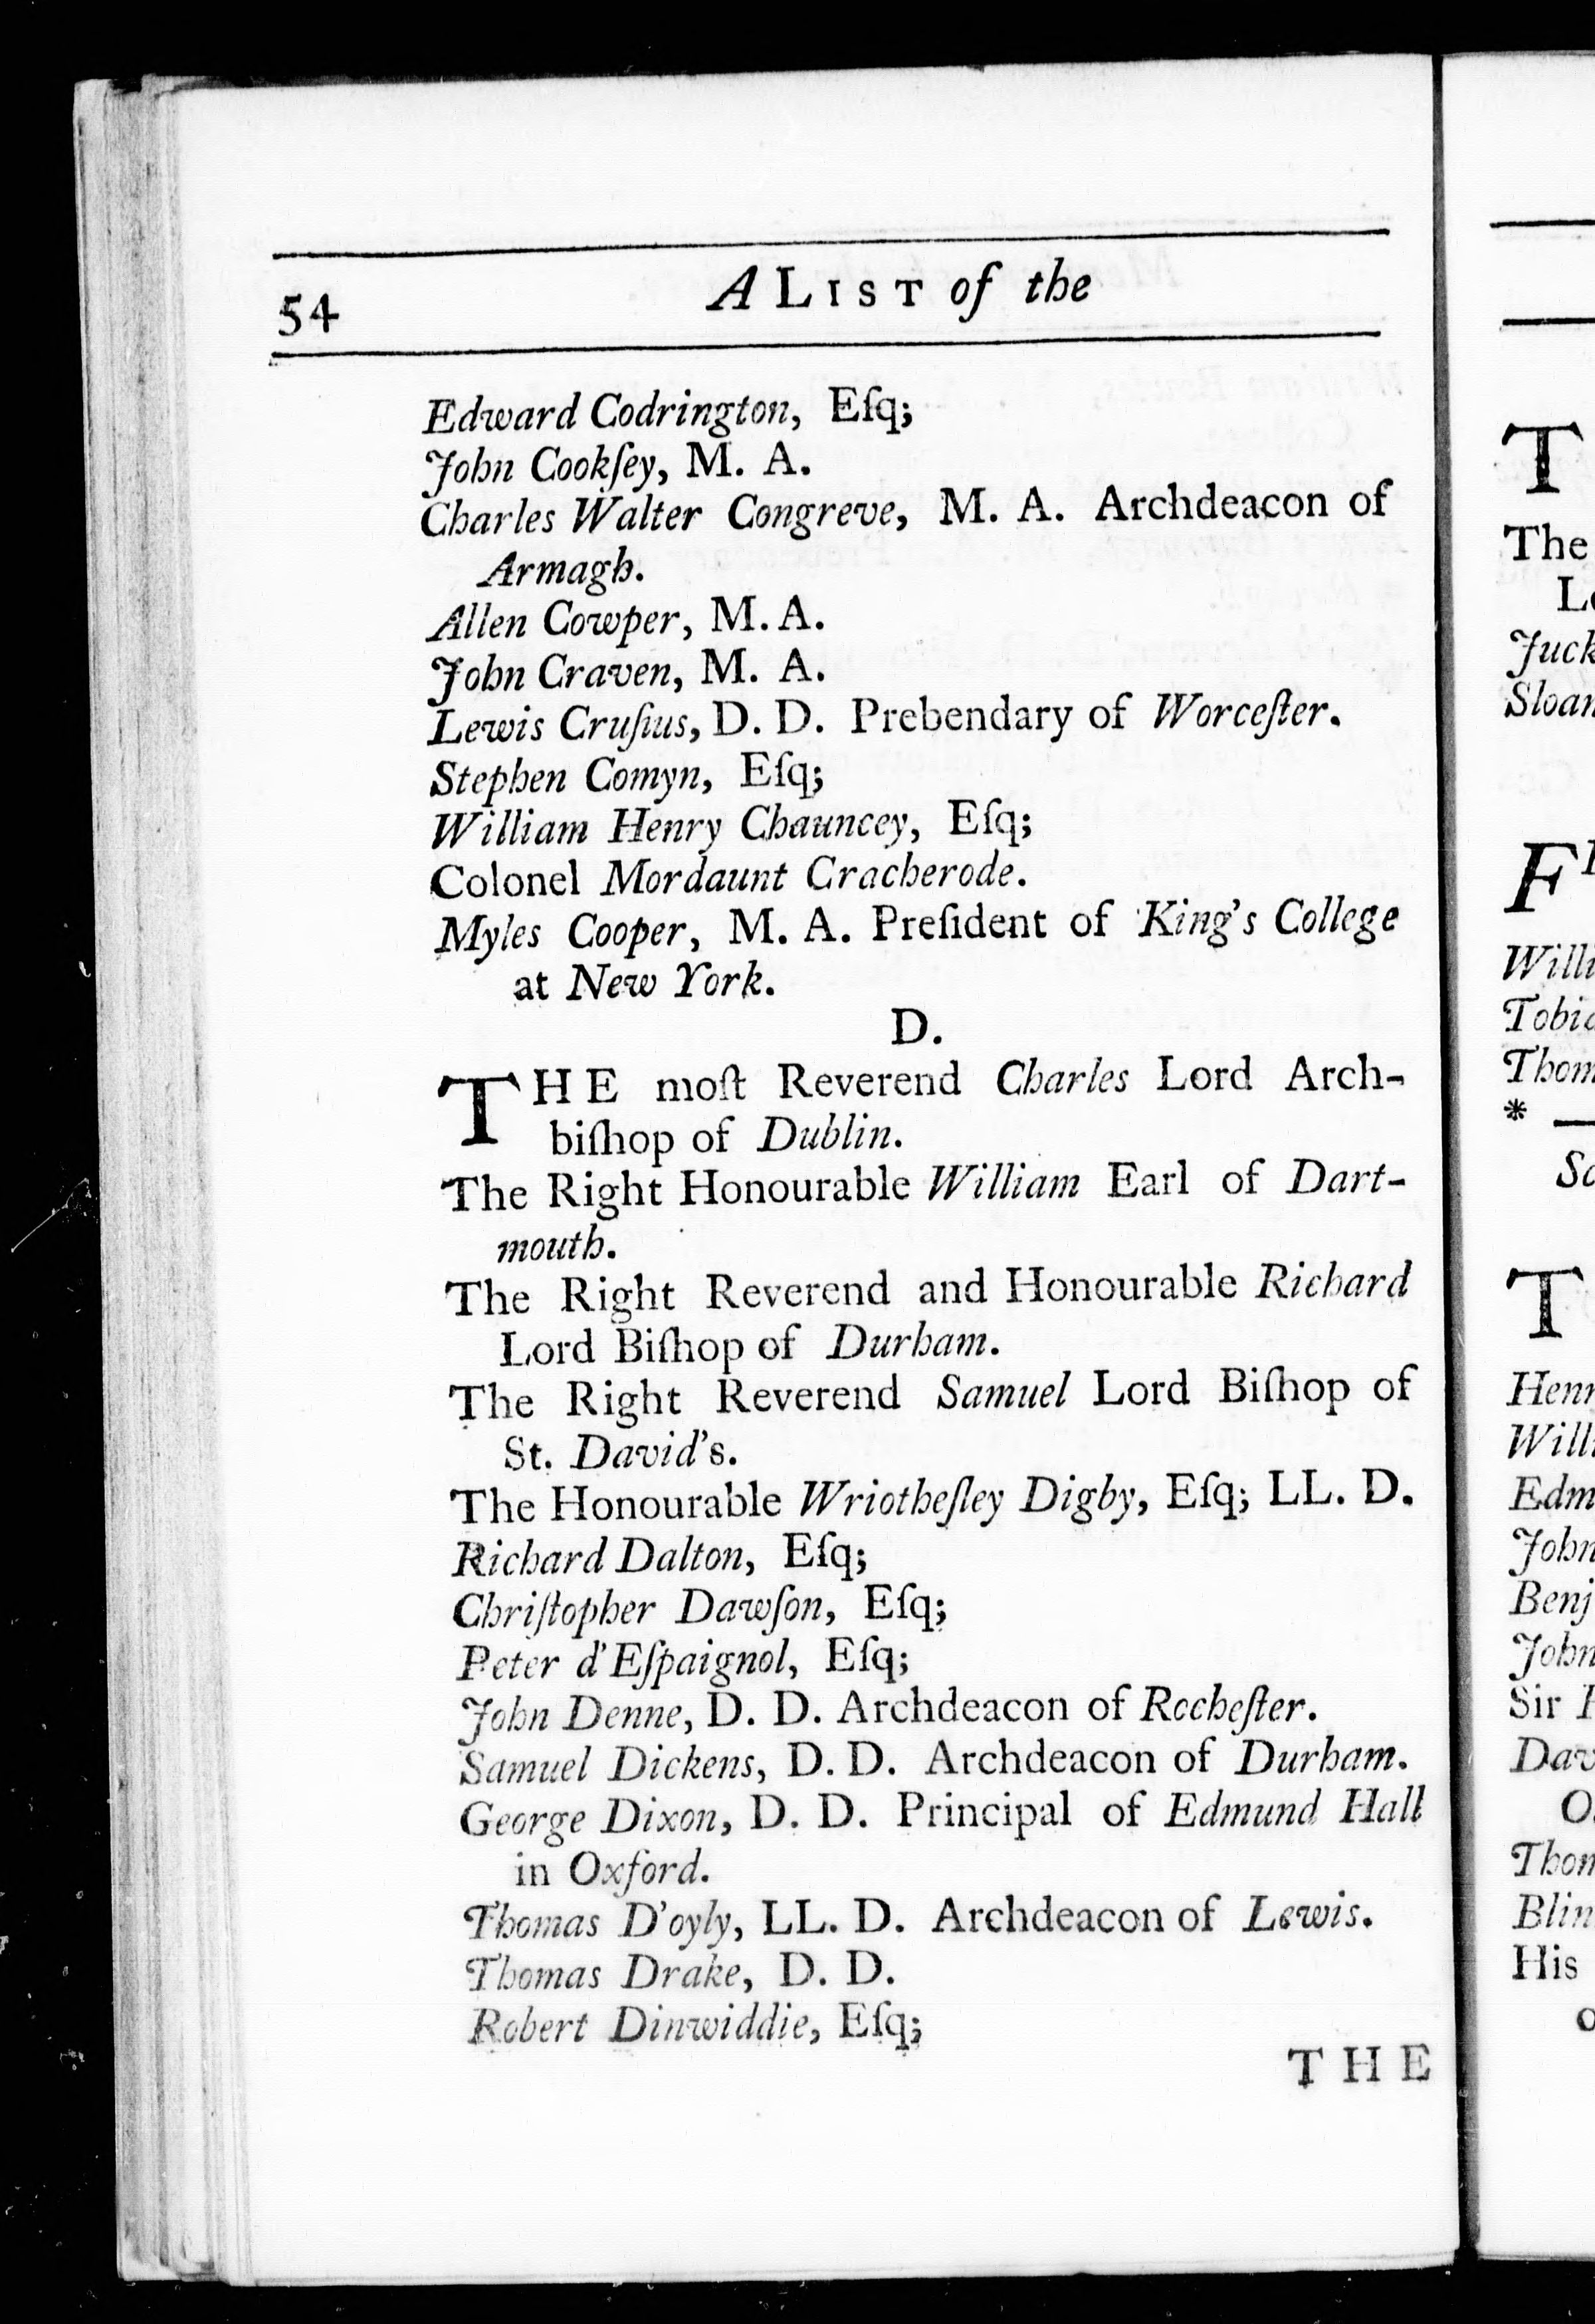 54
A LIST of the
Edward Codrington, Eſq;
John Cookſey, M. A.
Charles Walter Congreve, M. A. Archdeacon of
Armagh.
Allen Cowper, M. A.
John Craven, M. A.
Lewis Cruſius, D. D. Prebendary of Worceſter.
Stephen Comyn, Eſq;
William Henry Chauncey, Eſq;
Colonel Mordaunt Cracherode.
Myles Cooper, M. A. Preſident of King's College
at New York.
D.
THE moſt Reverend Charles Lord Arch-
biſhop of Dublin.
The Right Honourable William Earl of Dart-
mouth.
The Right Reverend and Honourable Richard
Lord Biſhop of Durham.
The Right Reverend Samuel Lord Biſhop of
St. David's.
The Honourable Wriotheſley Digby, Eſq; LL. D.
Richard Dalton, Eſq;
Chriſtopher Dawſon, Eſq;
Peter d'Eſpaignol, Eſq;
John Denne, D. D. Archdeacon of Rocheſter.
Samuel Dickens, D. D. Archdeacon of Durham.
George Dixon, D. D. Principal of Edmund Hall
in Oxford.
Thomas D'oyly, LL. D. Archdeacon of Lewis.
Thomas Drake, D. D.
Robert Dinwiddie, Eſq;
THE
T
The
Juck
Sloan
F
Willi
Thom
*
T
Henr
Will
Edm
John
Benj
John
Sir
Dav
Thom
Blin
His